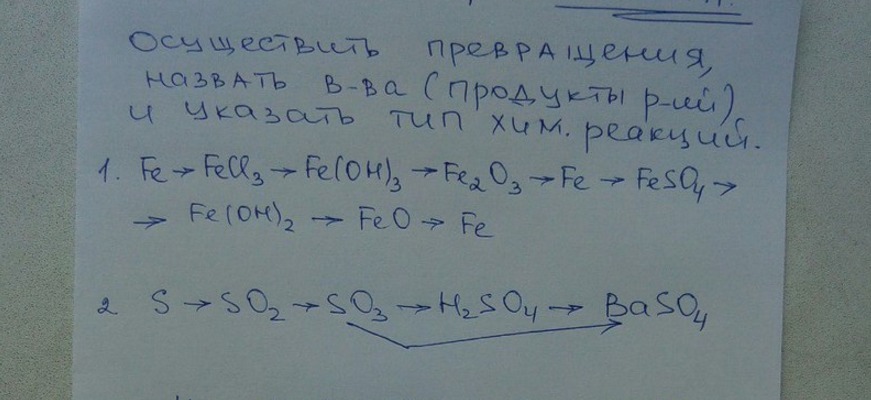 Осуществить превращения,
назвать в-ва (продукты р-ий)
и указать тип хим. реакций.
1. Fe → FeCl₃ → Fe(OH)₃ → Fe₂O₃ → Fe → FeSO₄ →
→ Fe(OH)₂ → FeO → Fe
2 S → SO₂ → SO₃ → H₂SO₄ → BaSO₄